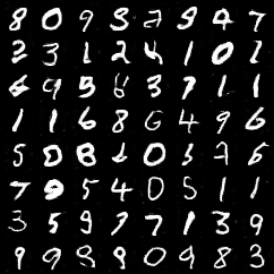 8 0 9 3 2 9 4 7
2 3 1 2 4 1 0 1
6 9 5 8 3 7 1 1
1 1 6 8 6 4 9 6
5 0 8 6 0 5 7 5
7 9 5 4 0 5 1 1
3 5 9 7 7 1 3 9
9 9 8 9 0 9 8 3